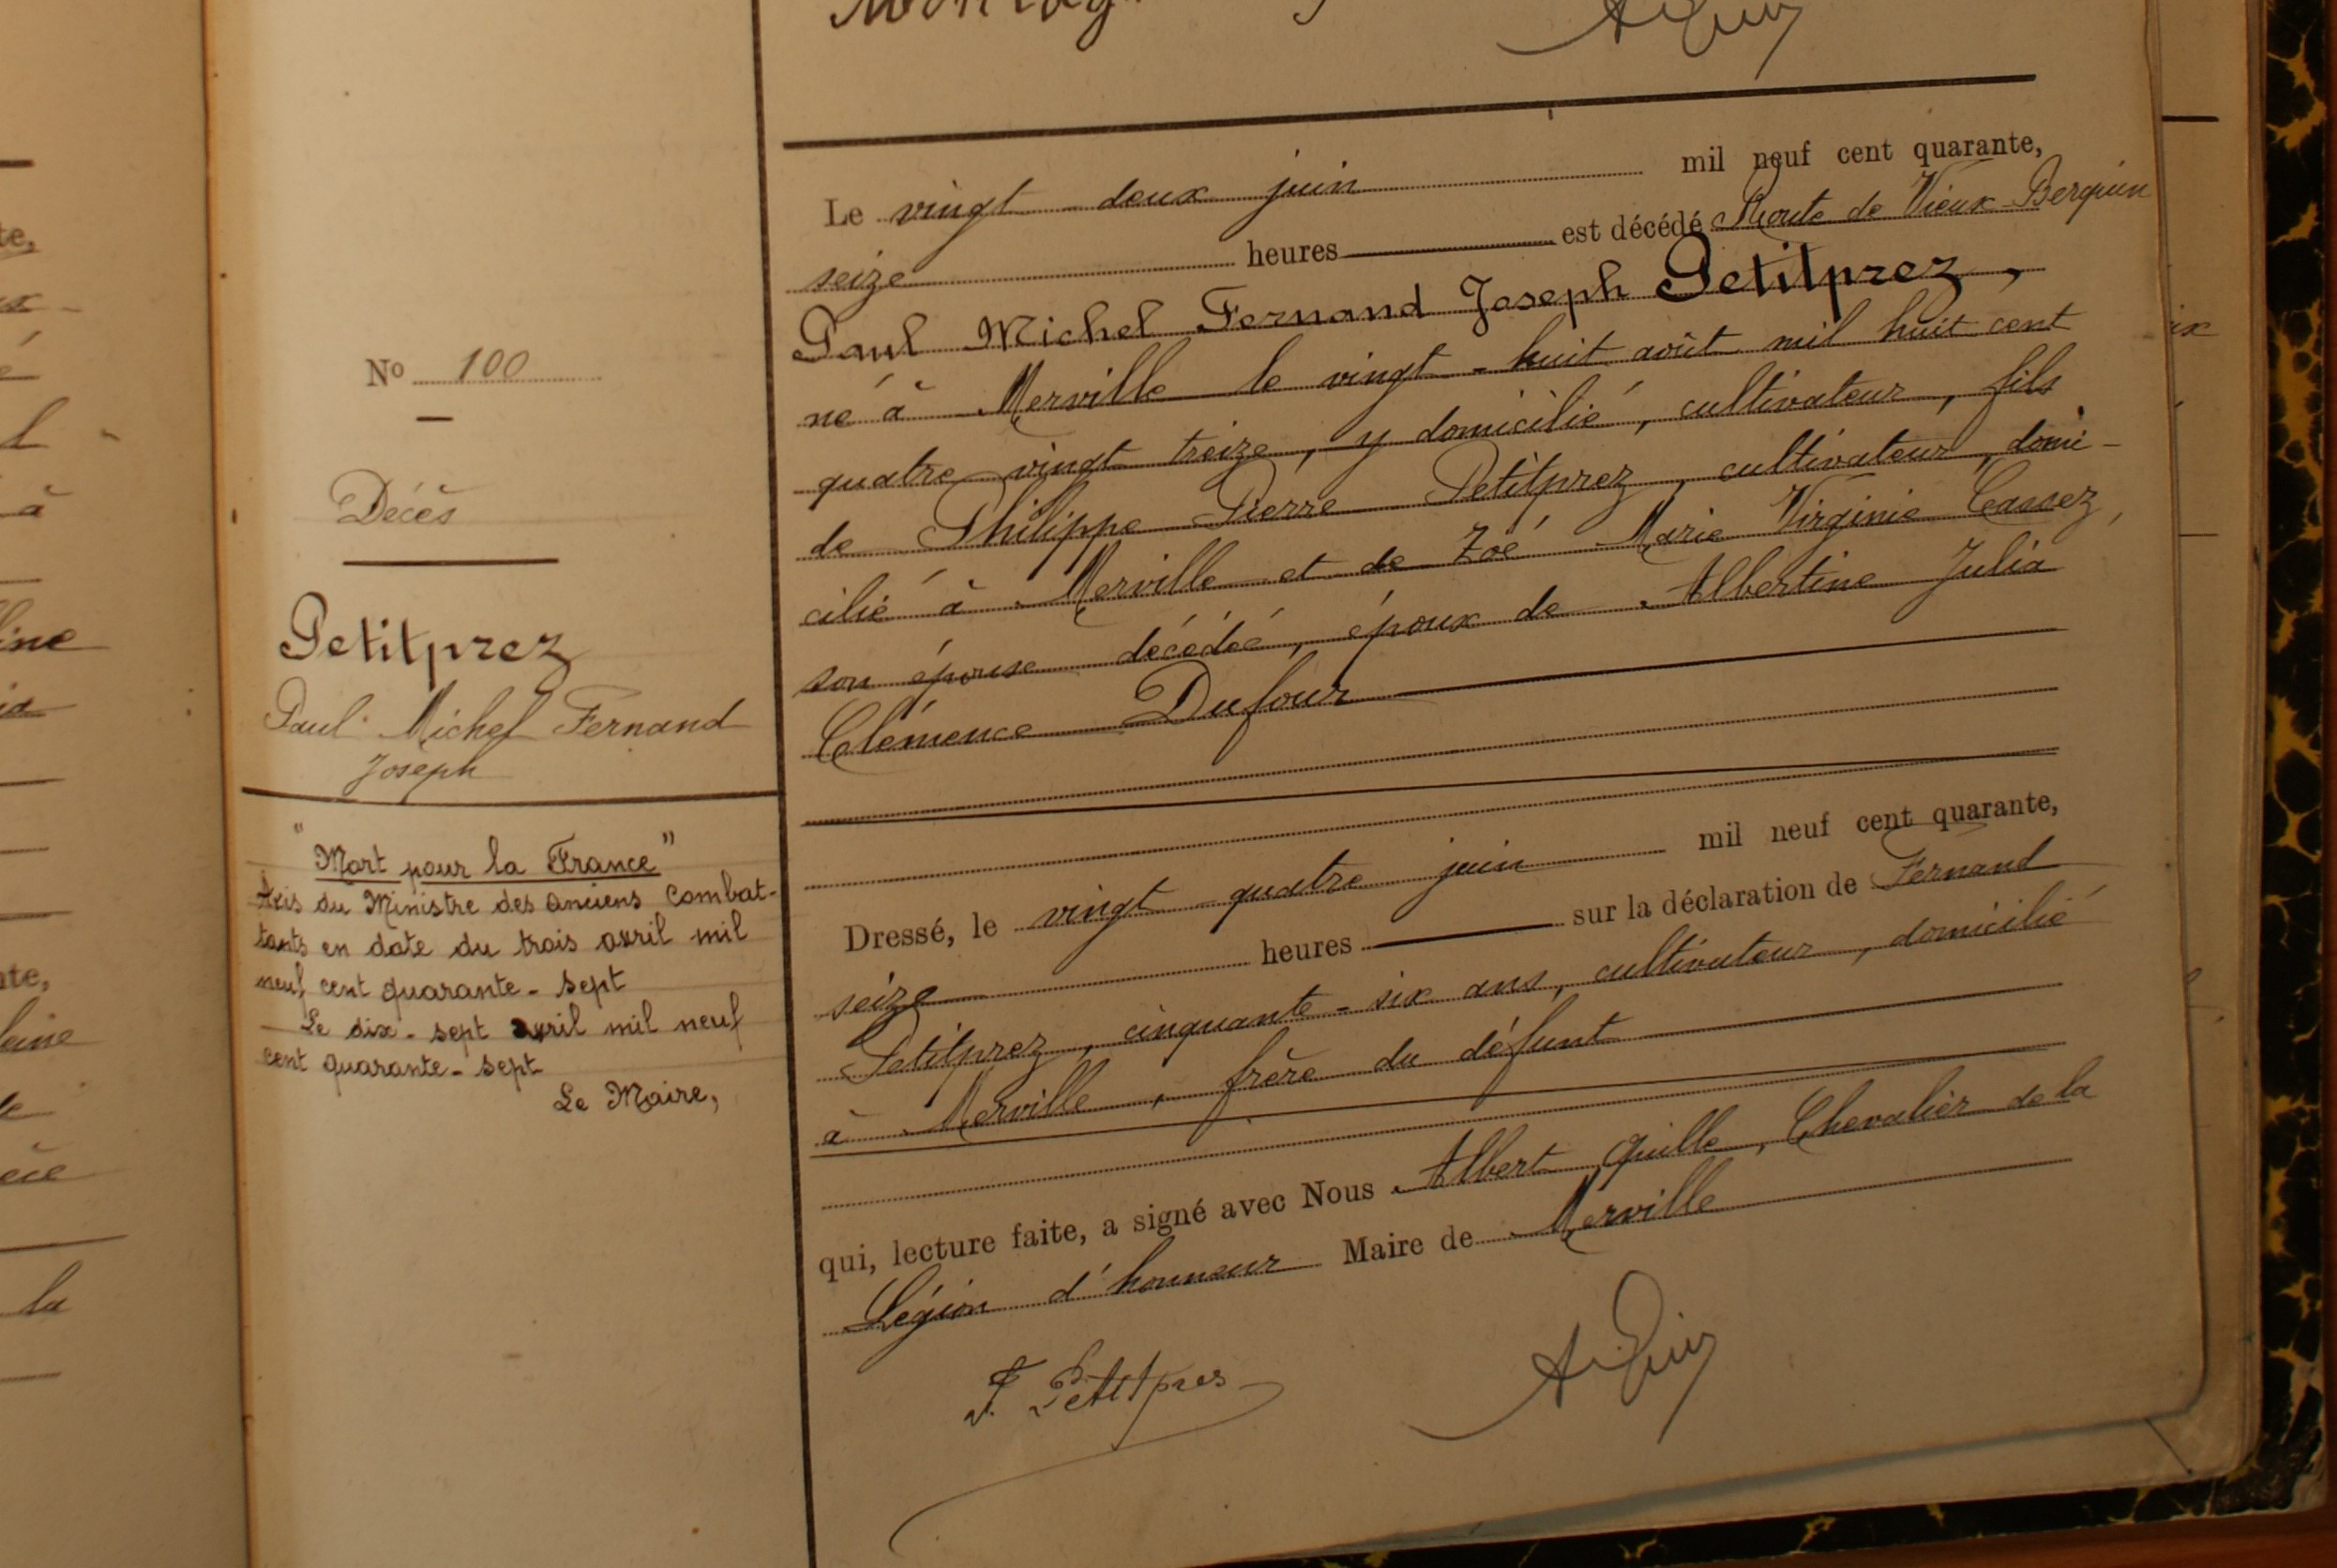 N° 100
Décès
Petitprez
Paul Michel Fernand
Joseph
"Mort pour la France"
Avis du Ministre des anciens combat-
tants en date du trois avril mil
neuf cent quarante-sept
Le dix-sept avril mil neuf
cent quarante-sept
Le Maire,
Le vingt-deux juin mil neuf cent quarante,
seize heures est décédé Route de Vieux-Berquin
Paul Michel Fernand Joseph Petitprez,
né à Merville le vingt-huit août mil huit cent
quatre vingt treize, y domicilié, cultivateur, fils
de Philippe Pierre Petitprez, cultivateur, domi-
cilié à Merville et de Zoé Marie Virginie Cassez,
son épouse décédée, époux de Albertine Julia
Clémence Dufour
Dressé, le vingt-quatre juin mil neuf cent quarante,
seize heures sur la déclaration de Fernand
Petitprez, cinquante-six ans, cultivateur, domicilié
à Merville, frère du défunt
qui, lecture faite, a signé avec Nous Albert Quille, Chevalier de la
Légion d'honneur Maire de Merville
F. Petitprez